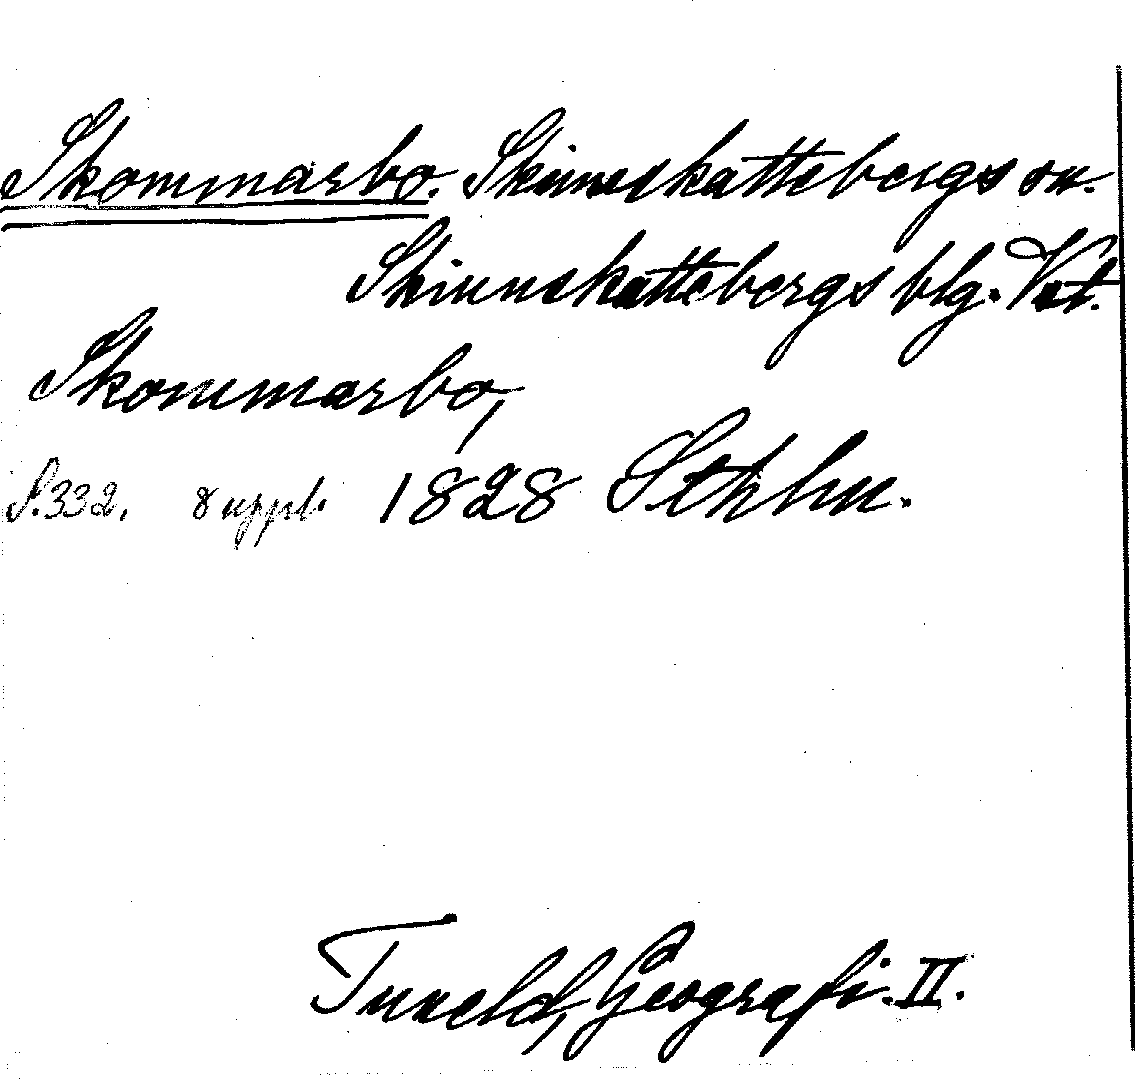 Skommarbo. Skinnskattebergs sn.
Skinnskattebergs blg. Vst.
Skommarbo,
S.332. 8 uppl. 1828 Sthlm.
Tuneld, Geografi. II.